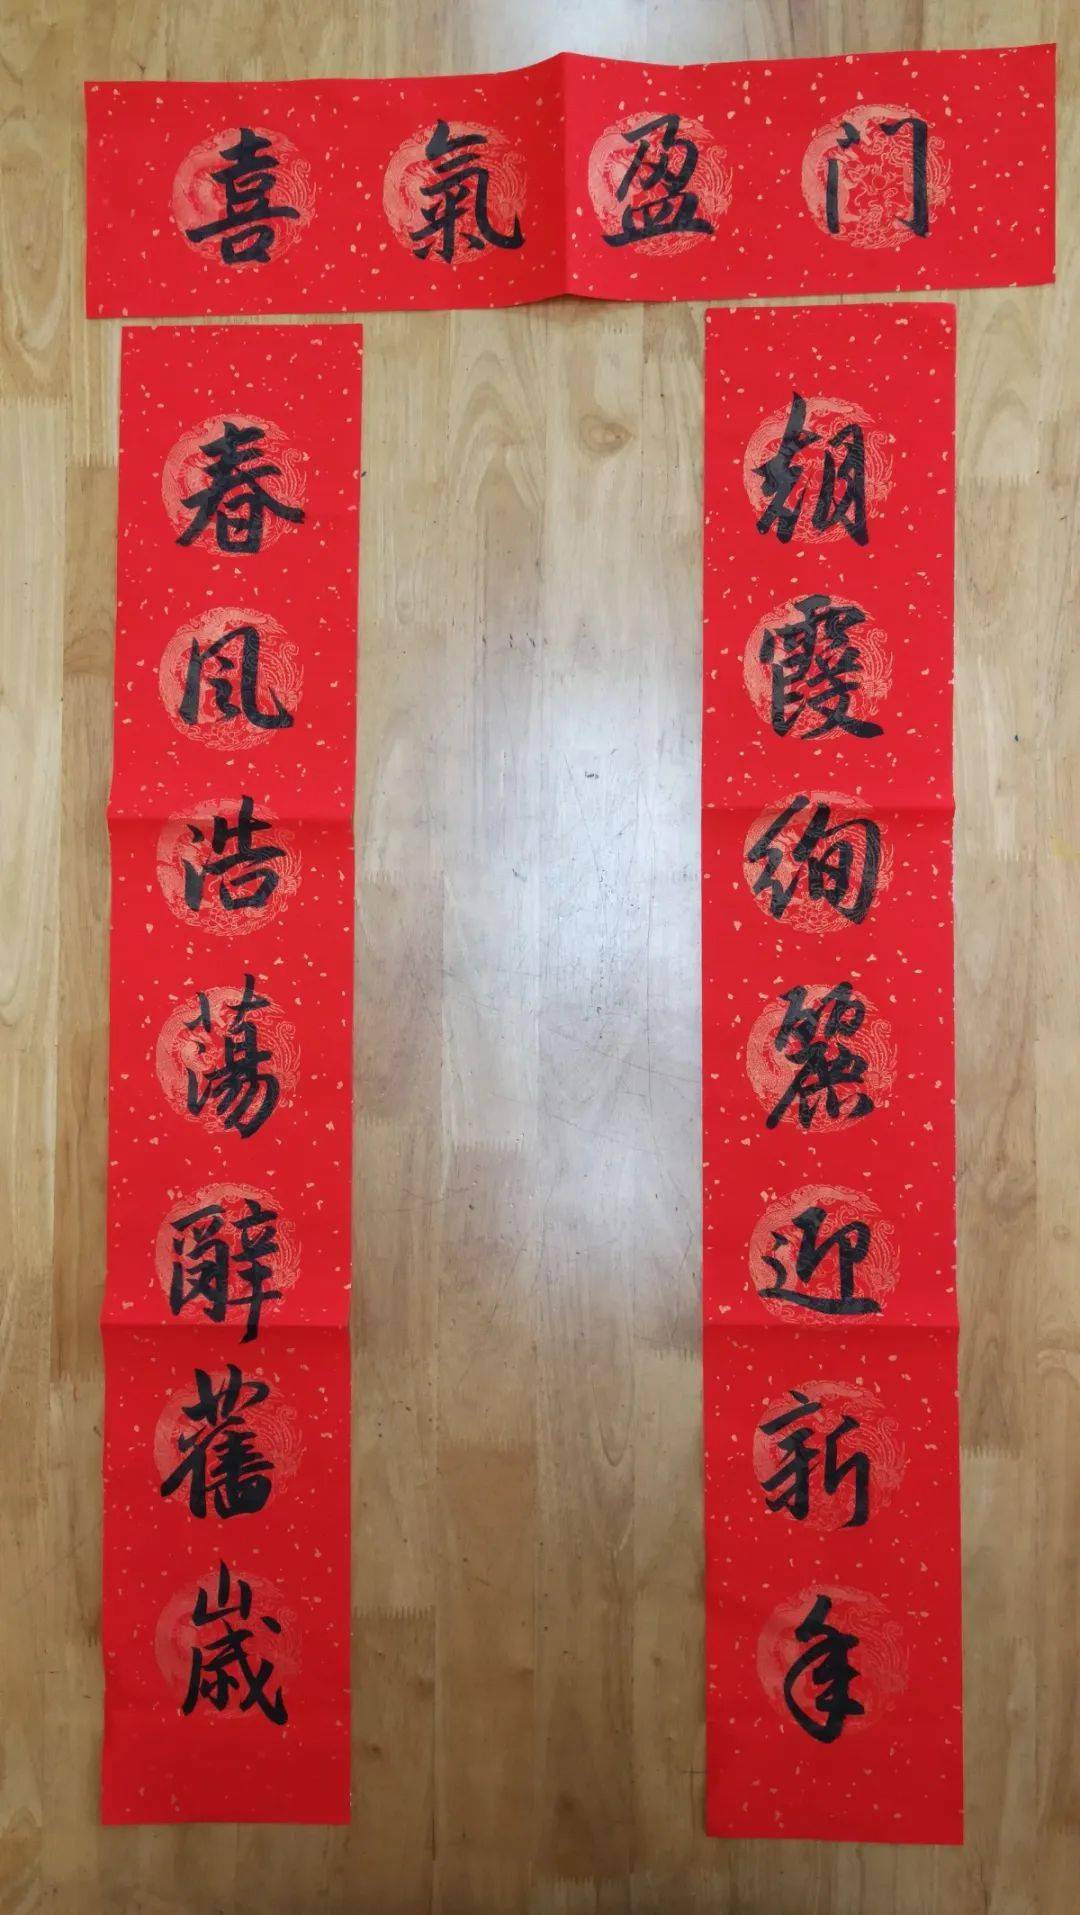 喜氣盈门
春风浩蕩辭舊歲
朝霞绚麗迎新年